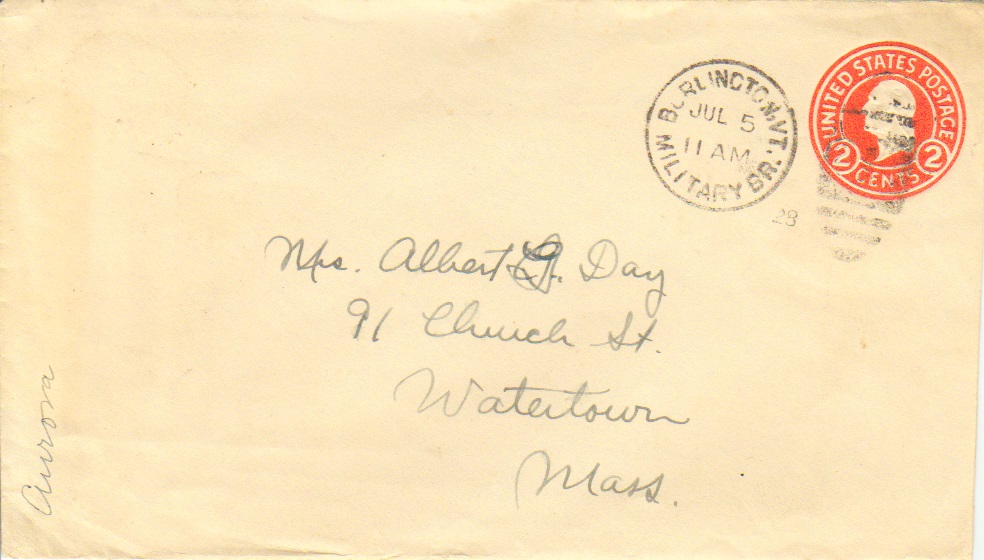 BURLINGTON, VT.
JUL 5
11 AM
MILITARY BR.
UNITED STATES POSTAGE
2 CENTS 2
28
Mrs. Albert G. Day
91 Church St.
Watertown
Mass.
Aurora